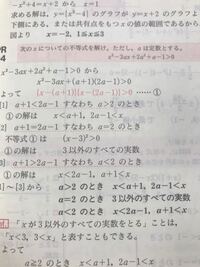 -x²+4=x+2 から x=1
求める解は、y=|x²-4|のグラフが y=x+2 のグラフより
下側にある、または共有点をもつ x の値の範囲であるから
図より x=-2, 1≦x≦3
PR
次の x についての不等式を解け。ただし、a は定数とする。
x²-3ax+2a²+a-1>0
x²-3ax+2a²+a-1>0 から
x²-3ax+(a+1)(2a-1)>0
よって {x-(a+1)}{x-(2a-1)}>0 ……①
[1] a+1<2a-1 すなわち a>2 のとき
①の解は x<a+1, 2a-1<x
[2] a+1=2a-1 すなわち a=2 のとき
不等式①は (x-3)²>0
①の解は 3以外のすべての実数
[3] a+1>2a-1 すなわち a<2 のとき
①の解は x<2a-1, a+1<x
[1]~[3]から a>2 のとき x<a+1, 2a-1<x
a=2 のとき 3以外のすべての実数
a<2 のとき x<2a-1, a+1<x
「x が3以外のすべての実数をとる」ことは、
「x<3, 3<x」と表すこともできる。
よって
a≧2 のとき x<a+1, 2a-1<x